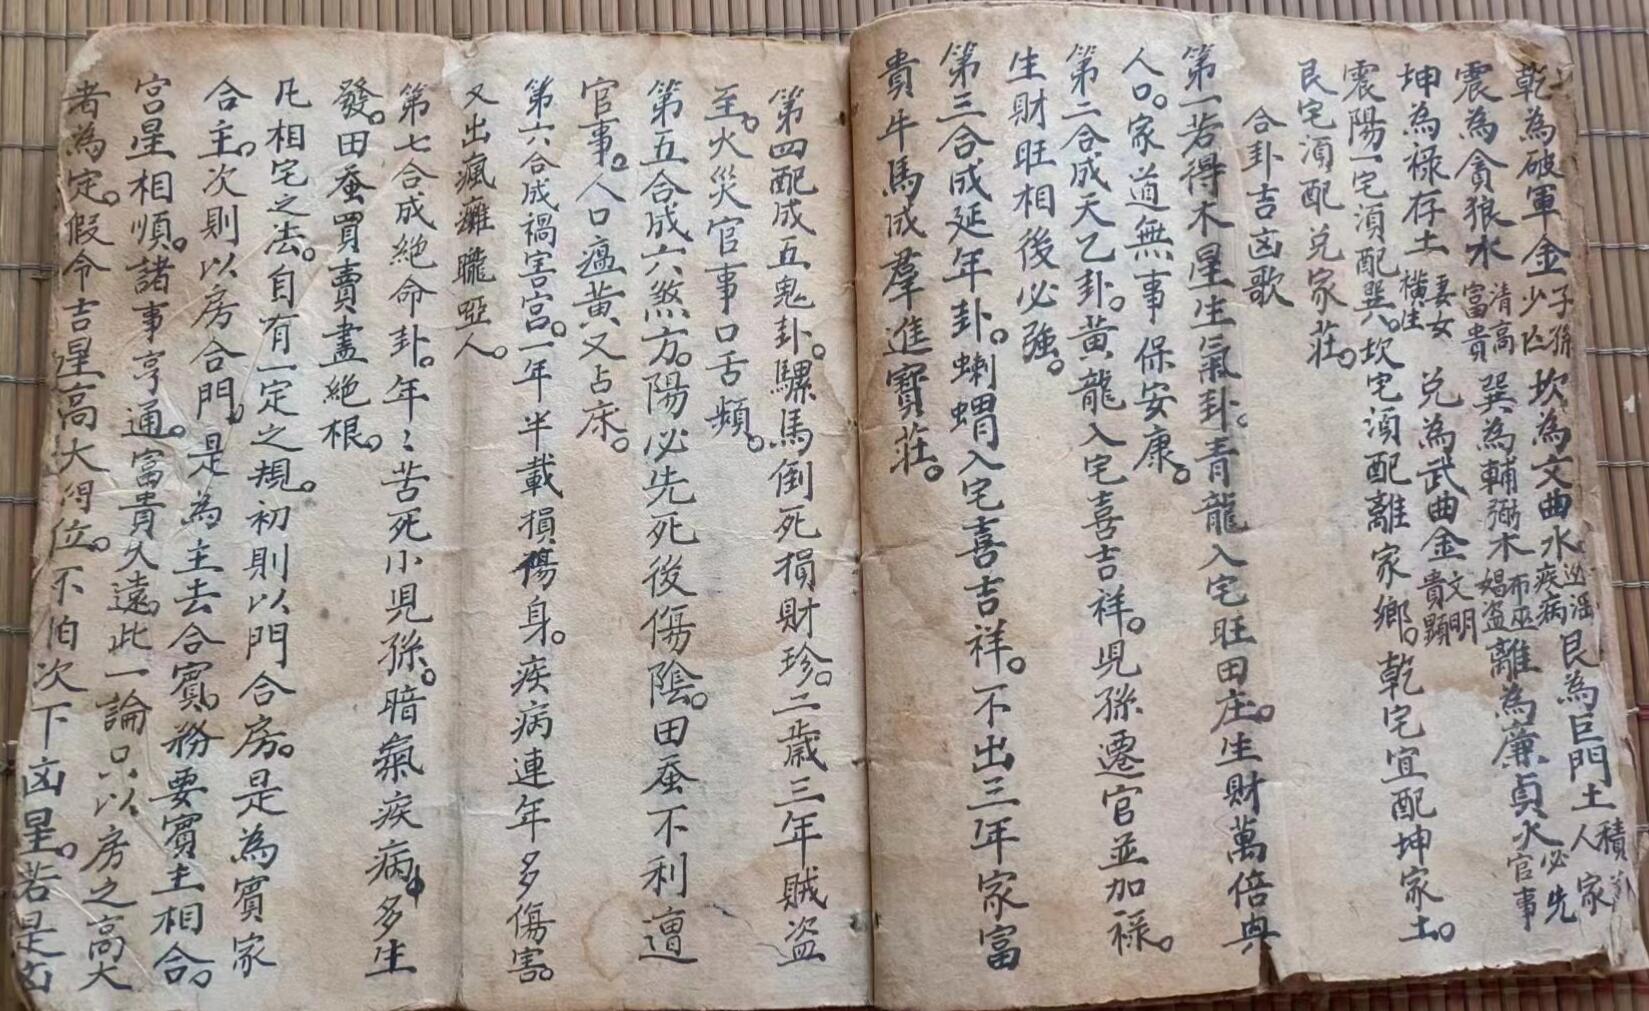 乾為破軍金子孫少亡坎為文曲水必淫疾病艮為巨門土積人家
震為貪狼水清高富貴巽為輔弼木布巫娼盗離為廉貞火必先官事
坤為禄存土妻女橫生兑為武曲金文明貴顯
震陽一宅湏配巽。坎宅湏配離家鄉。乾宅宜配坤家土。
艮宅湏配兑家莊。
合卦吉凶歌
第一若得木星生氣卦。青龍入宅旺田庄。生財萬倍興
人口。家道無事保安康。
第二合成天乙卦。黄龍入宅喜吉祥。児孫遷官並加禄。
生財旺相後必強。
第三合成延年卦。蝲蝟入宅喜吉祥。不出三年家富
貴牛馬成羣進寶莊。
第四配成五鬼卦。騾馬倒死損財珍。二歲三年賊盗
至。火災官事口舌頻。
第五合成六煞方。陽必先死後傷陰。田蚕不利遭
官事。人口瘟黄又占床。
第六合成禍害宮。一年半載損傷身。疾病連年多傷害。
又出瘋癱聾啞人。
第七合成絶命卦。年〻苦死小児孫。暗氣疾病多生
發。田蚕買賣盡絶根。
凡相宅之法。自有一定之規。初則以門合房。是為賓家
合主。次則以房合門。是為主去合賓。務要賓主相合。
宮星相順。諸事亨通。富貴久遠。此一論只以房之高大
者為定。假令吉星高大得位。不怕次下凶星。若是凶